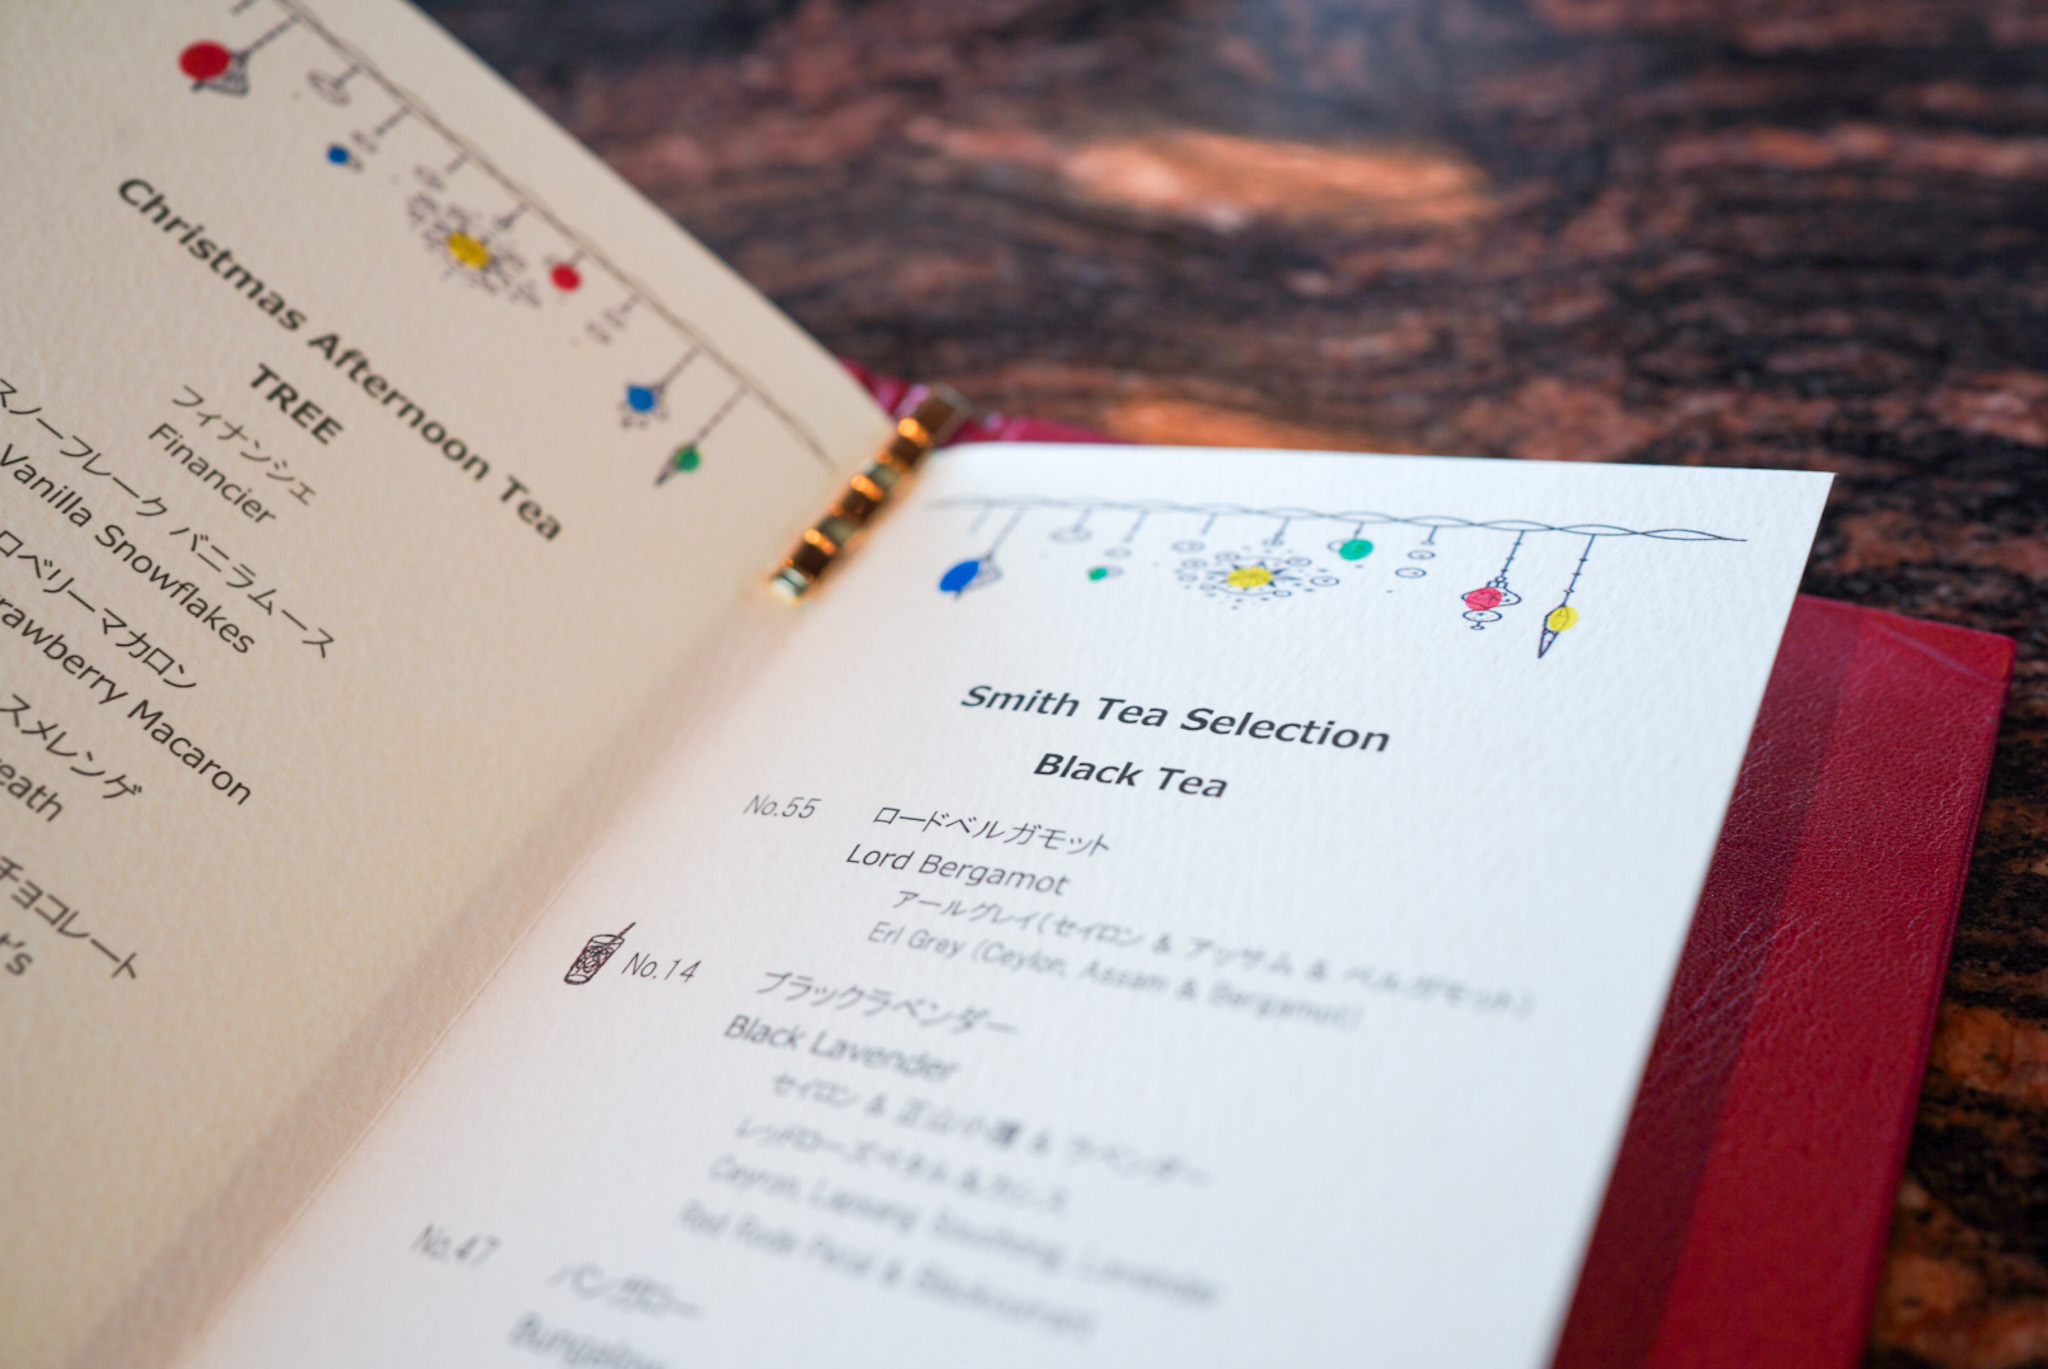 Christmas Afternoon Tea
TREE
フィナンシェ
Financier
スノーフレーク バニラムース
Vanilla Snowflakes
ロベリーマカロン
rawberry Macaron
スメレンゲ
eath
チョコレート
's
Smith Tea Selection
Black Tea
No.55 ロードベルガモット
Lord Bergamot
アールグレイ(セイロン & アッサム & ベルガモット)
Erl Grey (Ceylon, Assam & Bergamot)
No.14 ブラックラベンダー
Black Lavender
セイロン & 正山小種 & ラベンダー
レッドローズペタル &
Lapsang Lavender
Red Petal &
No.47 バンガロー
Bungalow